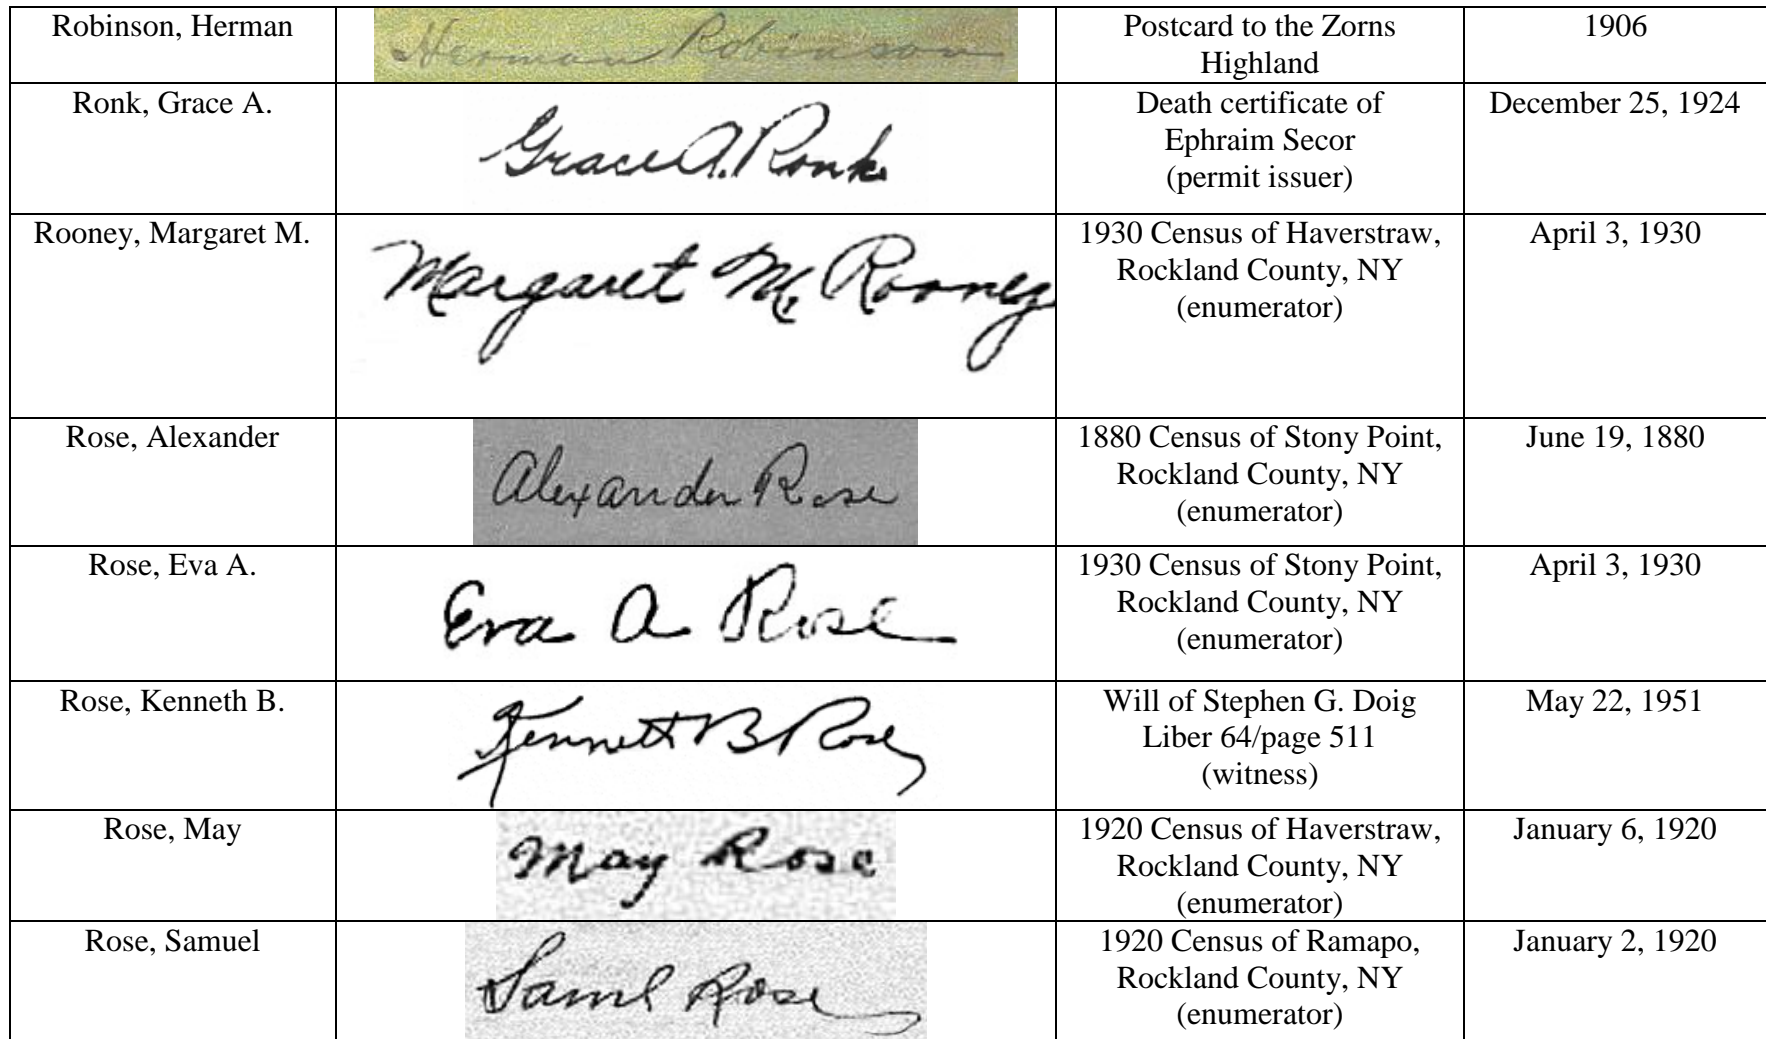 Robinson, Herman
Herman Robinson
Postcard to the Zorns
Highland
1906
Ronk, Grace A.
Grace A. Ronk
Death certificate of
Ephraim Secor
(permit issuer)
December 25, 1924
Rooney, Margaret M.
Margaret M. Rooney
1930 Census of Haverstraw,
Rockland County, NY
(enumerator)
April 3, 1930
Rose, Alexander
Alexander Rose
1880 Census of Stony Point,
Rockland County, NY
(enumerator)
June 19, 1880
Rose, Eva A.
Eva A Rose
1930 Census of Stony Point,
Rockland County, NY
(enumerator)
April 3, 1930
Rose, Kenneth B.
Kenneth B Rose
Will of Stephen G. Doig
Liber 64/page 511
(witness)
May 22, 1951
Rose, May
May Rose
1920 Census of Haverstraw,
Rockland County, NY
(enumerator)
January 6, 1920
Rose, Samuel
Saml Rose
1920 Census of Ramapo,
Rockland County, NY
(enumerator)
January 2, 1920